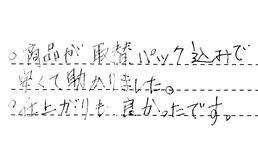 ○商品が取替パック込みで
安くて助かりました。
○仕上がりも良かったです。